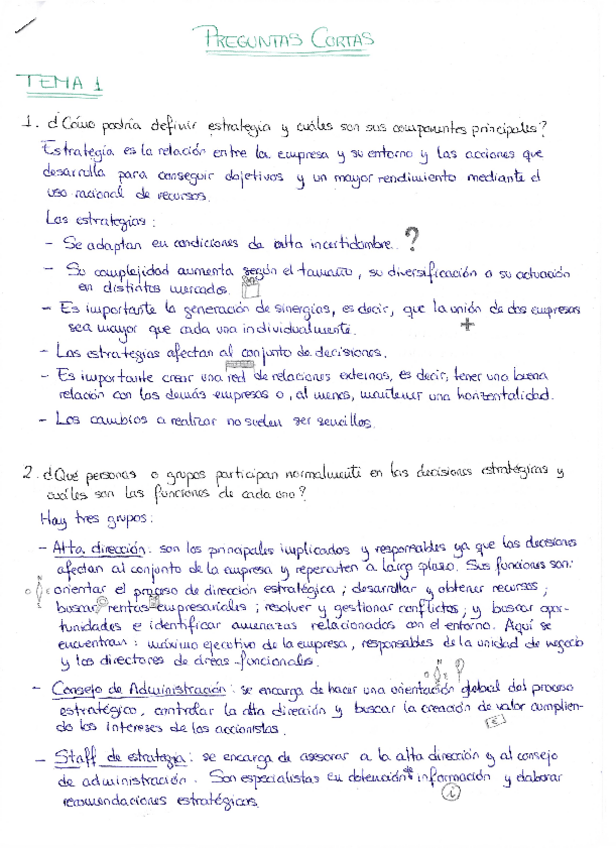 PREGUNTAS CORTAS
TEMA 1
1. ¿Cómo podría definir estrategia y cuáles son sus componentes principales?
Estrategia es la relación entre la empresa y su entorno y las acciones que
desarrolla para conseguir objetivos y un mayor rendimiento mediante el
uso racional de recursos.
Las estrategias:
- Se adaptan en condiciones de alta incertidumbre. ?
- Su complejidad aumenta según el tamaño, su diversificación o su actuación
en distintos mercados.
- Es importante la generación de sinergias, es decir, que la unión de dos empresas
sea mayor que cada una individualmente. +
- Las estrategias afectan al conjunto de decisiones.
- Es importante crear una red de relaciones externas, es decir, tener una buena
relación con las demás empresas o, al menos, mantener una horizontalidad.
- Los cambios a realizar no suelen ser sencillos.
2. ¿Qué personas o grupos participan normalmente en las decisiones estratégicas y
cuáles son las funciones de cada uno?
Hay tres grupos:
- Alta dirección: son los principales implicados y responsables ya que las decisiones
afectan al conjunto de la empresa y repercuten a largo plazo. Sus funciones son:
orientar el proceso de dirección estratégica; desarrollar y obtener recursos;
buscar rentas empresariales; resolver y gestionar conflictos; y buscar opor-
tunidades e identificar amenazas relacionados con el entorno. Aquí se
encuentran: máximo ejecutivo de la empresa, responsables de la unidad de negocio
y los directores de áreas funcionales.
- Consejo de Administración: se encarga de hacer una orientación global del proceso
estratégico, controlar la alta dirección y buscar la creación de valor cumplien-
do los intereses de los accionistas.
- Staff de estrategia: se encarga de asesorar a la alta dirección y al consejo
de administración. Son especialistas en obtención información y elaborar
recomendaciones estratégicas. i